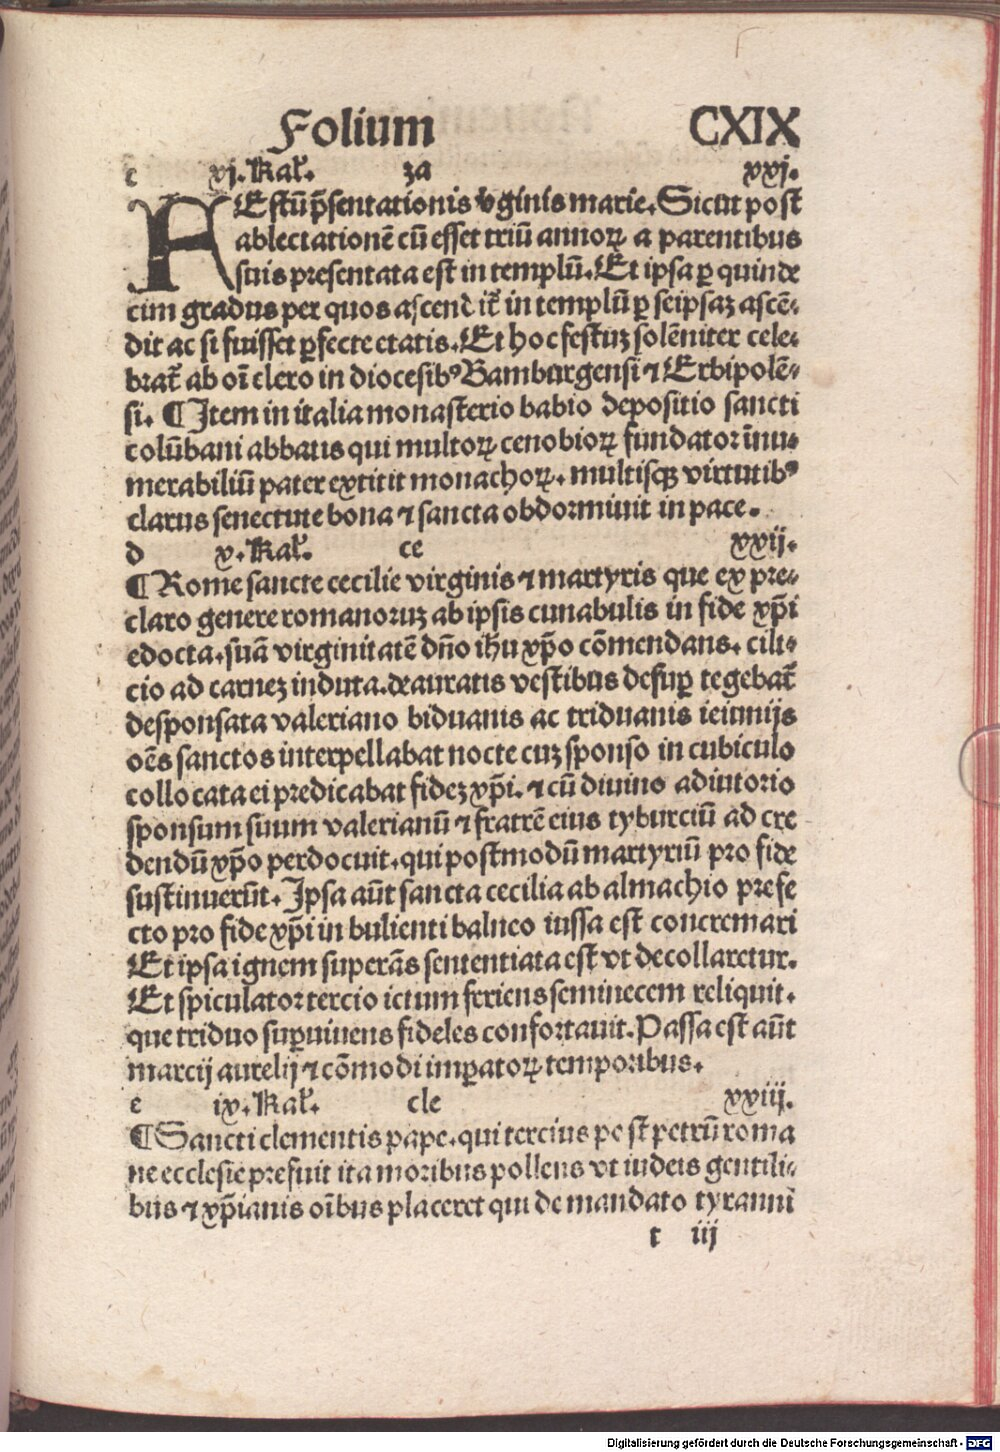 Folium CXIX
c xj. Kal̄. za xxj.
FEstū p̄sentationis v̓ginis marie. Sicut post
ablectationē cū esset triū annoꝝ a parentibus
suis presentata est in templū. Et ipsa ꝑ quinde
cim gradus per quos ascendit̄ in templū ꝑ seipsaꝫ ascē⸗
dit ac si fuisset ꝑfecte etatis. Et hoc festuꝫ solēniter cele⸗
brat̄ ab oī clero in diocesibꝰ Bamburgensi ⁊ Erbipolē⸗
si. ¶ Item in italia monasterio babio depositio sancti
colūbani abbatis qui multoꝝ cenobioꝝ fundator īnu⸗
merabiliū pater extitit monachoꝝ. multisqꝫ virtutibꝰ
clarus senectute bona ⁊ sancta obdormiuit in pace.
d x. Kal̄. ce xxij.
¶ Rome sancte cecilie virginis ⁊ martyris que ex pre⸗
claro genere romanoruꝫ ab ipsis cunabulis in fide xp̄i
edocta. suā virginitatē dn̄o ih̄u xp̄o cōmendans. cili⸗
cio ad carneꝫ induta. deauratis vestibus desuꝑ tegebat̄
desponsata valeriano biduanis ac triduanis ieiunijs
oēs sanctos interpellabat nocte cuꝫ sponso in cubiculo
collocata ei predicabat fideꝫ xp̄i. ⁊ cū diuino adiutorio
sponsum suum valerianū ⁊ fratrē eius tyburciū ad cre
dendū xp̄o perdocuit. qui postmodū martyriū pro fide
sustinuerūt. Ipsa aūt sancta cecilia ab almachio prefe
cto pro fide xp̄i in bulienti balneo iussa est concremari
Et ipsa ignem superās sententiata est vt decollaretur.
Et spiculator tercio ictum feriens seminecem reliquit.
que triduo suꝑuiuens fideles confortauit. Passa est aūt
marcij aurelij ⁊ cōmodi imꝑatoꝝ temporibus.
e ix. Kal̄. cle xxiij.
¶ Sancti clementis pape. qui tercius post petrū roma
ne ecclesie prefuit ita moribus pollens vt iudeis gentili⸗
bus ⁊ xp̄ianis oībus placeret qui de mandato tyranni
t iij
Digitalisierung gefördert durch die Deutsche Forschungsgemeinschaft - DFG